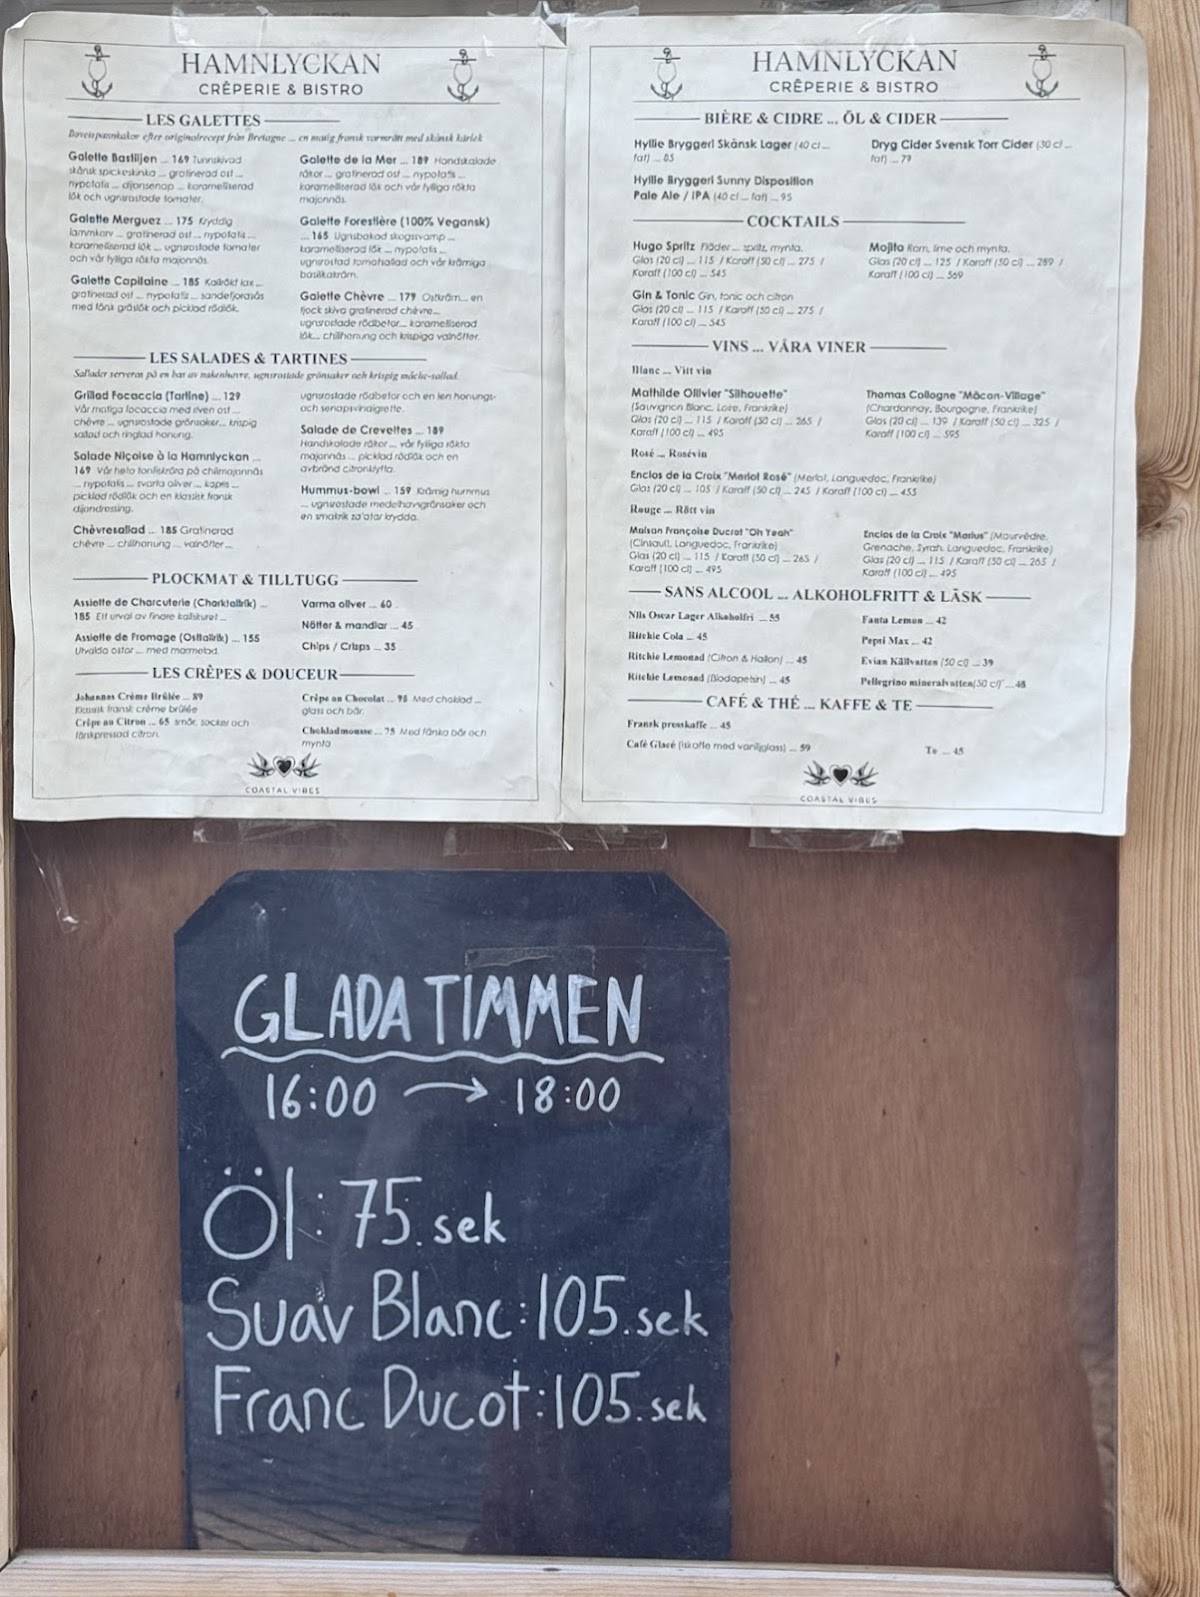 HAMNLYCKAN
CRÊPERIE & BISTRO
LES GALETTES
Bovetepannkakor efter originalrecept från Bretagne ... en matig fransk varmrätt med skånsk kärlek
Galette Bastiljen ... 169 Tunnskivad
skånsk spickeskinka ... gratinerad ost ...
nypotatis ... dijonsenap ... karamelliserad
lök och ugnsrostade tomater.
Galette Merguez ... 175 Kryddig
lammkorv ... gratinerad ost ... nypotatis ...
karamelliserad lök ... ugnsrostade tomater
och vår fylliga rökta majonnäs.
Galette Capitaine ... 185 Kallrökt lax ...
gratinerad ost ... nypotatis ... sandefjordsås
med färsk gräslök och picklad rödlök.
Galette de la Mer ... 189 Handskalade
räkor ... gratinerad ost ... nypotatis ...
karamelliserad lök och vår fylliga rökta
majonnäs.
Galette Forestière (100% Vegansk)
... 165 Ugnsbakad skogssvamp ...
karamelliserad lök ... nypotatis ...
ugnsrostad tomatsallad och vår krämiga
basilikakräm.
Galette Chèvre ... 179 Ostkräm... en
tjock skiva gratinerad chèvre...
ugnsrostade rödbetor... karamelliserad
lök... chilihonung och krispiga valnötter.
LES SALADES & TARTINES
Sallader serveras på en bas av nakenhavre, ugnsrostade grönsaker och krispig mâche-sallad.
Grillad Focaccia (Tartine) ... 129
Vår matiga focaccia med riven ost ...
chèvre ... ugnsrostade grönsaker... krispig
sallad och ringlad honung.
Salade Niçoise à la Hamnlyckan ...
169 Vår heta tonfiskröra på chilimajonnäs
... nypotatis ... svarta oliver ... kapris ...
picklad rödlök och en klassisk fransk
dijondressing.
Chèvresallad ... 185 Gratinerad
chèvre ... chilihonung ... valnötter ...
ugnsrostade rödbetor och en len honungs-
och senapsvinaigrette.
Salade de Crevettes ... 189
Handskalade räkor... vår fylliga rökta
majonnäs ... picklad rödlök och en
avbränd citronklyfta.
Hummus-bowl ... 159 Krämig hummus
... ugnsrostade medelhavsgrönsaker och
en smakrik za'atar krydda.
PLOCKMAT & TILLTUGG
Assiette de Charcuterie (Charktallrik) ...
185 Ett urval av finare kallskuret ...
Assiette de Fromage (Osttallrik) ... 155
Utvalda ostar ... med marmelad.
Varma oliver ... 60
Nötter & mandlar ... 45
Chips / Crisps ... 35
LES CRÊPES & DOUCEUR
Johannas Crème Brûlée ... 89
Klassisk fransk crème brûlée
Crêpe au Citron ... 65 smör, socker och
färskpressad citron.
Crêpe au Chocolat ... 98 Med choklad ...
glass och bär.
Chokladmousse ... 75 Med färska bär och
mynta
COASTAL VIBES
HAMNLYCKAN
CRÊPERIE & BISTRO
BIÈRE & CIDRE ... ÖL & CIDER
Hyllie Bryggeri Skånsk Lager (40 cl ...
fat) ... 85
Dryg Cider Svensk Torr Cider (30 cl ...
fat) ... 79
Hyllie Bryggeri Sunny Disposition
Pale Ale / IPA (40 cl ... fat) ... 95
COCKTAILS
Hugo Spritz Fläder ... spritz, mynta.
Glas (20 cl) ... 115 / Karaff (50 cl) ... 275 /
Karaff (100 cl) ... 545
Mojito Rom, lime och mynta.
Glas (20 cl) ... 125 / Karaff (50 cl) ... 289 /
Karaff (100 cl) ... 569
Gin & Tonic Gin, tonic och citron
Glas (20 cl) ... 115 / Karaff (50 cl) ... 275 /
Karaff (100 cl) ... 545
VINS ... VÅRA VINER
Blanc ... Vitt vin
Mathilde Ollivier "Silhouette"
(Sauvignon Blanc, Loire, Frankrike)
Glas (20 cl) ... 115 / Karaff (50 cl) ... 265 /
Karaff (100 cl) ... 495
Thomas Collogne "Mâcon-Village"
(Chardonnay, Bourgogne, Frankrike)
Glas (20 cl) ... 139 / Karaff (50 cl) ... 325 /
Karaff (100 cl) ... 595
Rosé ... Rosévin
Enclos de la Croix "Merlot Rosé" (Merlot, Languedoc, Frankrike)
Glas (20 cl) ... 105 / Karaff (50 cl) ... 245 / Karaff (100 cl) ... 455
Rouge ... Rött vin
Maison Françoise Ducrot "Oh Yeah"
(Cinsault, Languedoc, Frankrike)
Glas (20 cl) ... 115 / Karaff (50 cl) ... 265 /
Karaff (100 cl) ... 495
Enclos de la Croix "Marius" (Mourvèdre,
Grenache, Syrah, Languedoc, Frankrike)
Glas (20 cl) ... 115 / Karaff (50 cl) ... 265 /
Karaff (100 cl) ... 495
SANS ALCOOL ... ALKOHOLFRITT & LÄSK
Nils Oscar Lager Alkoholfri ... 55
Ritchie Cola ... 45
Ritchie Lemonad (Citron & Hallon) ... 45
Ritchie Lemonad (Blodapelsin) ... 45
Fanta Lemon ... 42
Pepsi Max ... 42
Evian Källvatten (50 cl) ... 39
Pellegrino mineralvatten(50 cl) ... 48
CAFÉ & THÉ ... KAFFE & TE
Fransk presskaffe ... 45
Café Glacé (iskaffe med vaniljglass) ... 59
Te ... 45
COASTAL VIBES
GLADA TIMMEN
16:00 → 18:00
Öl: 75.sek
Suav Blanc: 105.sek
Franc Ducot: 105.sek